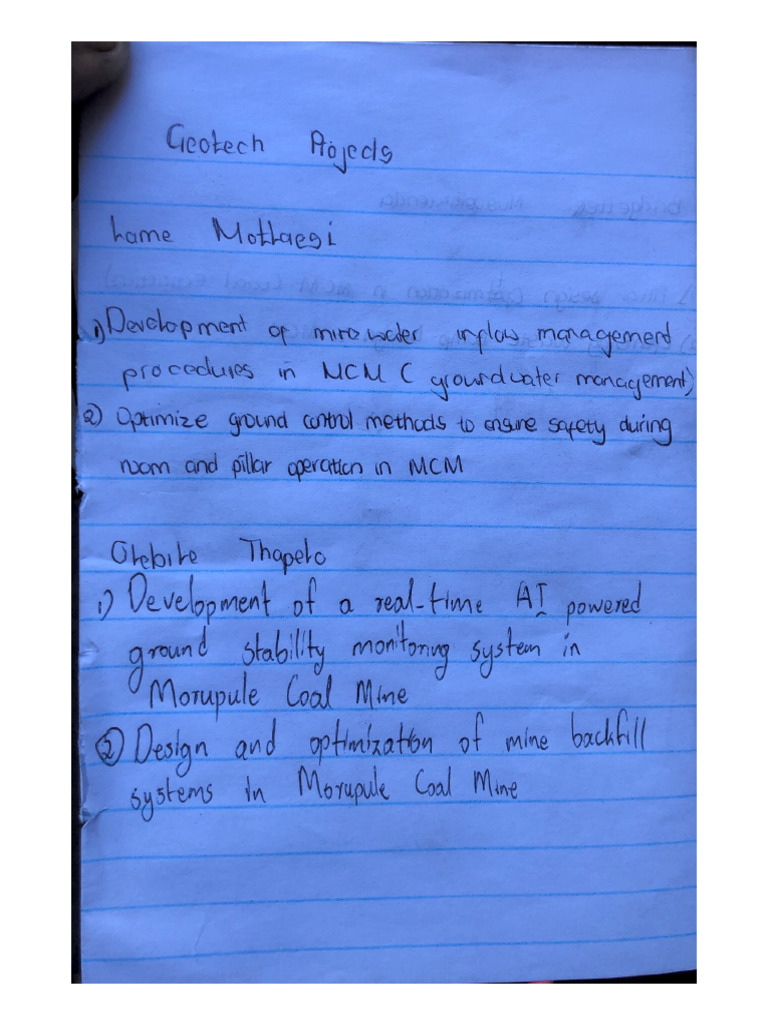 Geotech Projects
Lame Motlaegi
1) Development of mine water inflow management
procedures in MCM ( groundwater management)
2) Optimize ground control methods to ensure safety during
room and pillar operation in MCM
Otebile Thapelo
1) Development of a real-time AI powered
ground stability monitoring system in
Morupule Coal Mine
2) Design and optimization of mine backfill
systems in Morupule Coal Mine